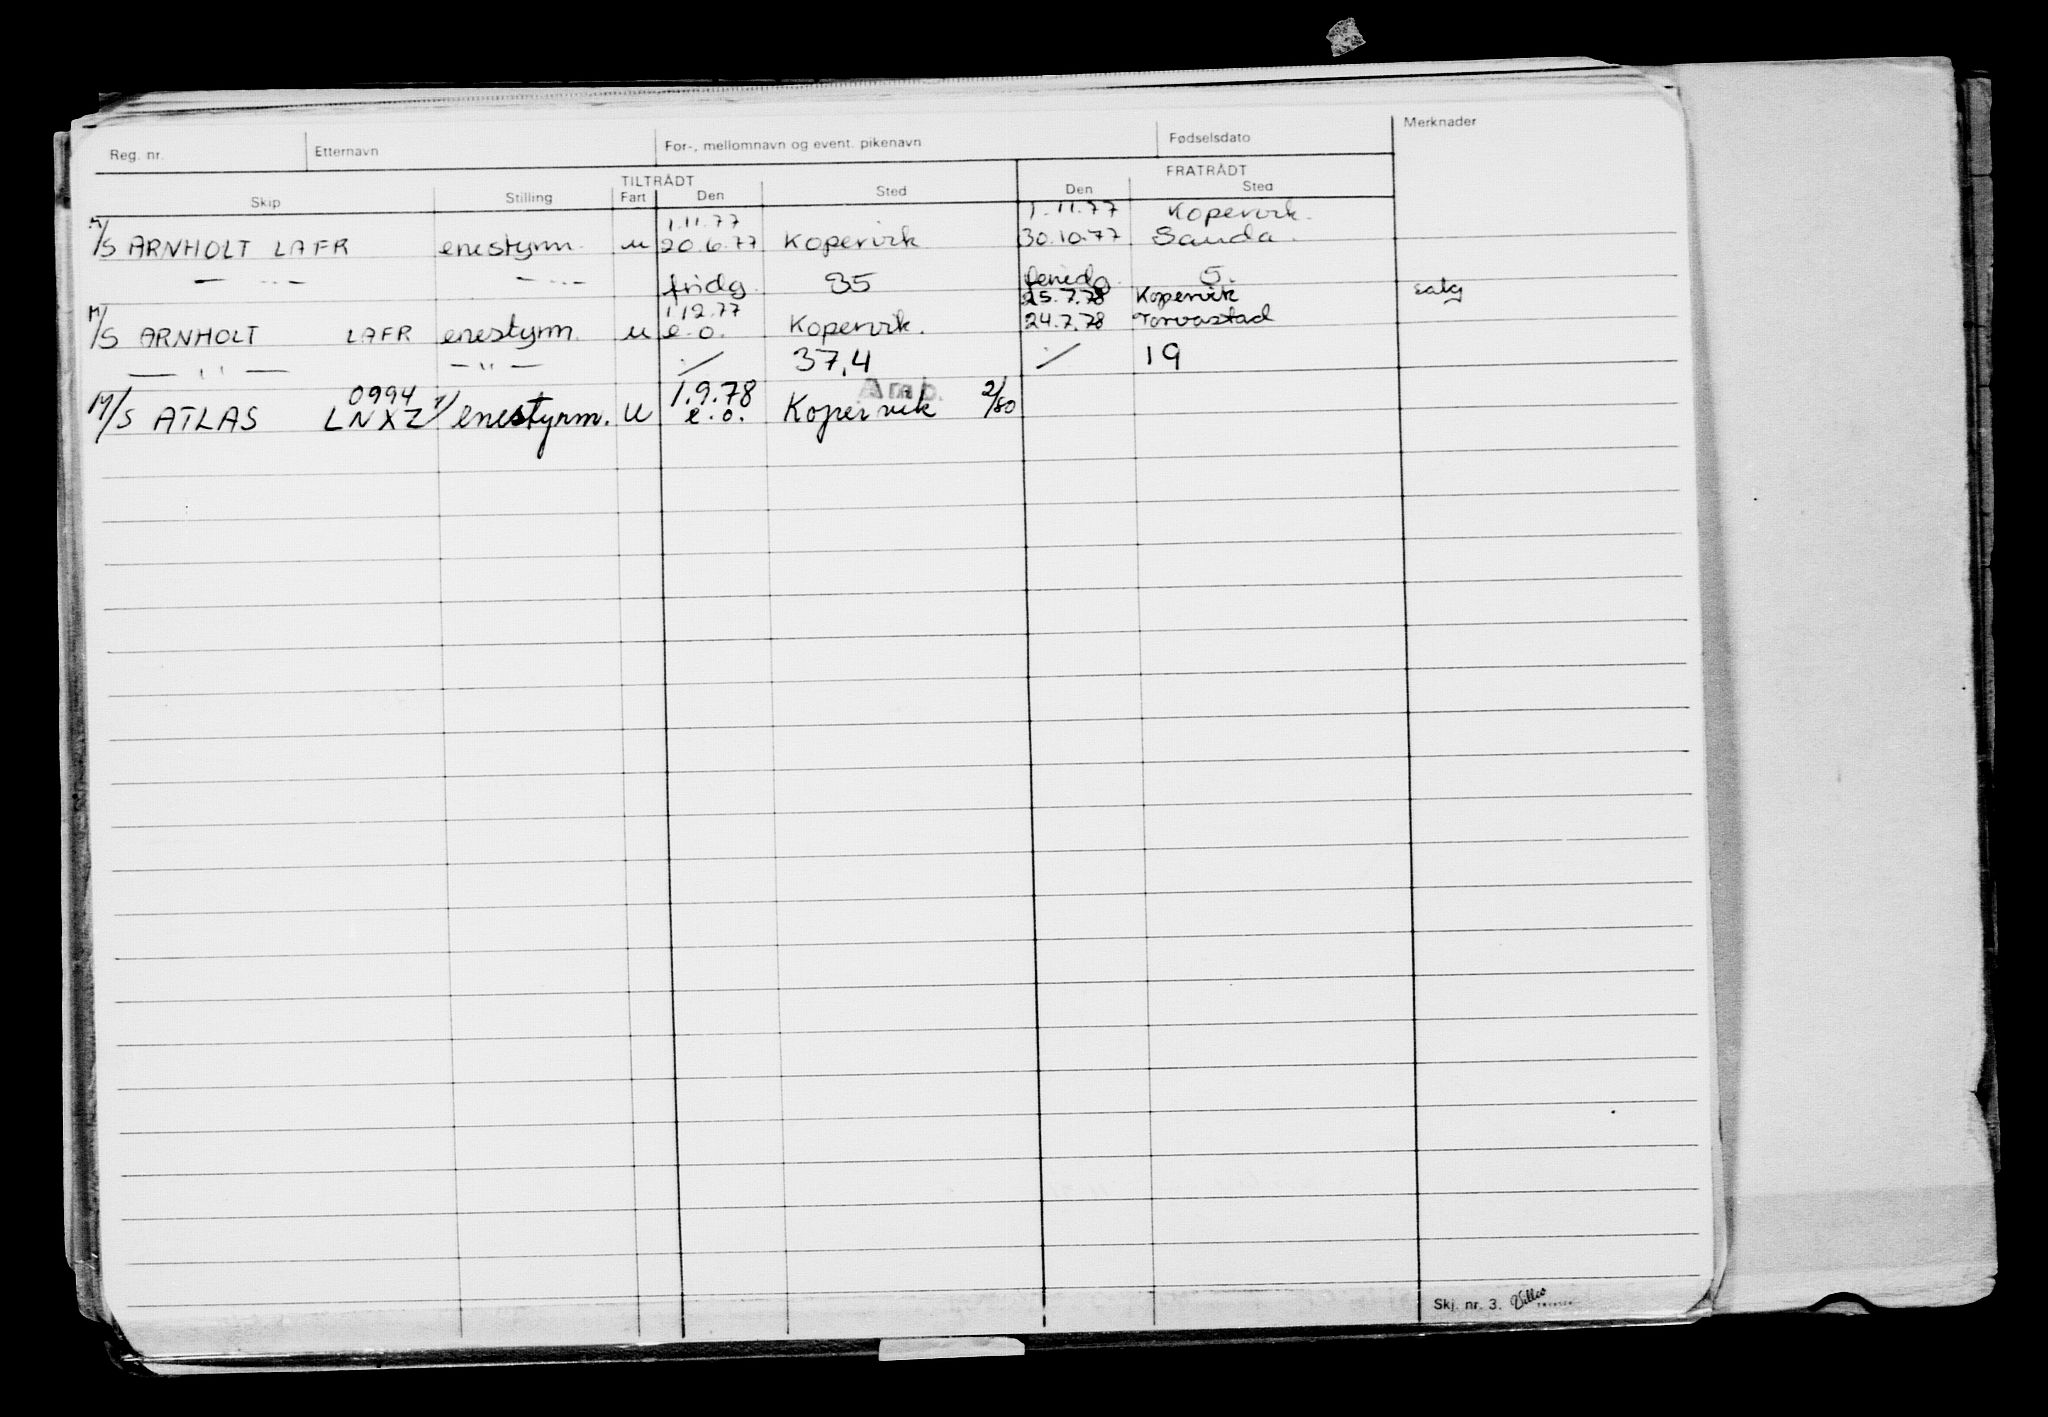 Reg. nr. Etternavn For-, mellomnavn og event. pikenavn Fødselsdato Merknader
TILTRÅDT FRATRÅDT
Skip Stilling Fart Den Sted Den Sted
1.11.77 1.11.77 Kopervik.
M/S ARNHOLT LAFR enestyrm. u 20.6.77 Kopervik 30.10.77 Sauda.
— " — — " — fridg. 35 feriedg. 5.
25.7.78 Kopervik salg
M/S ARNHOLT LAFR enestyrm. u 1.12.77 e.o. Kopervik. 24.7.78 Torvastad
— " — — " — ./ 37,4 ./ 19
0994 1.9.78 Amb. 2/80
M/S ATLAS LNXZ enestyrm. u e.o. Kopervik
Skj. nr. 3.